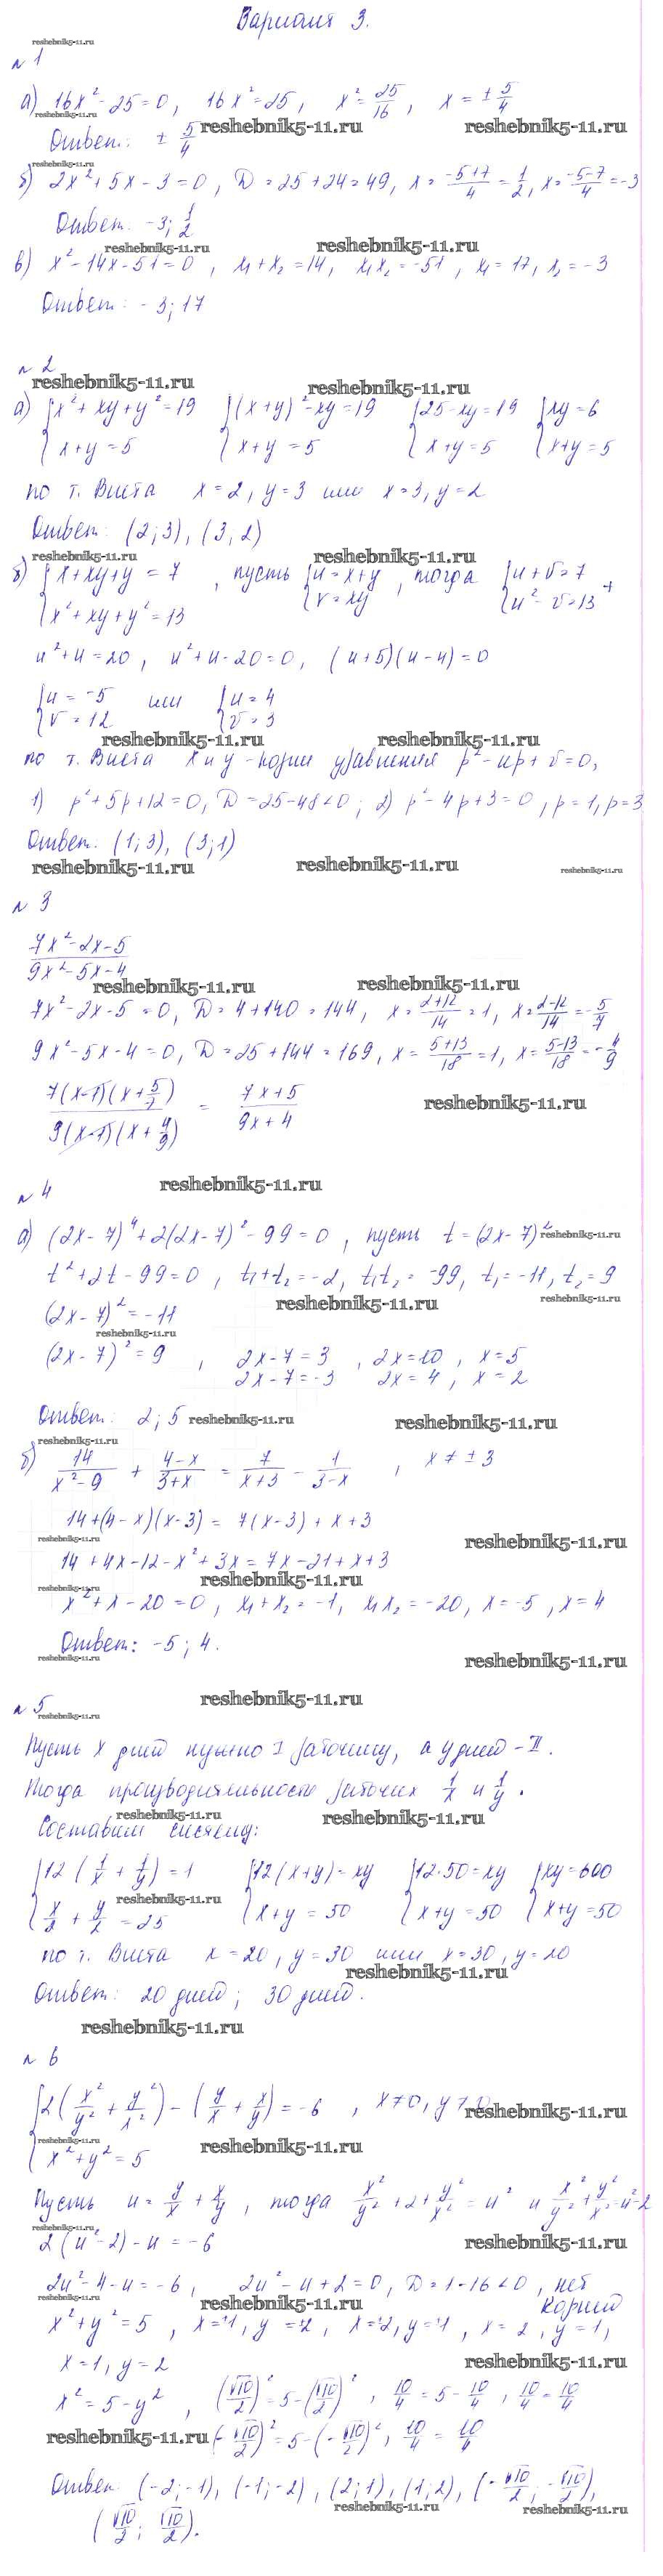 Вариант 3.
reshebnik5-11.ru
№ 1
а) 16x² - 25 = 0, 16x² = 25, x² = 25/16, x = ± 5/4
reshebnik5-11.ru
Ответ: ± 5/4
reshebnik5-11.ru reshebnik5-11.ru
reshebnik5-11.ru
б) 2x² + 5x - 3 = 0, D = 25 + 24 = 49, x = (-5+7)/4 = 1/2, x = (-5-7)/4 = -3
Ответ: -3; 1/2
reshebnik5-11.ru reshebnik5-11.ru
в) x² - 14x - 51 = 0, x₁ + x₂ = 14, x₁x₂ = -51, x₁ = 17, x₂ = -3
Ответ: -3; 17
№ 2
reshebnik5-11.ru reshebnik5-11.ru
а) { x² + xy + y² = 19 { (x+y)² - xy = 19 { 25 - xy = 19 { xy = 6
x + y = 5 x + y = 5 x + y = 5 x + y = 5
по т. Виета x = 2, y = 3 или x = 3, y = 2
Ответ: (2; 3), (3; 2)
reshebnik5-11.ru reshebnik5-11.ru
б) { x + xy + y = 7, пусть { u = x + y, тогда { u + v = 7 +
x² + xy + y² = 13 v = xy u² - v = 13
u² + u = 20, u² + u - 20 = 0, (u+5)(u-4) = 0
{ u = -5 или { u = 4
v = 12 v = 3
reshebnik5-11.ru reshebnik5-11.ru
по т. Виета x и y - корни уравнения p² - up + v = 0,
1) p² + 5p + 12 = 0, D = 25 - 48 < 0; 2) p² - 4p + 3 = 0, p = 1, p = 3
Ответ: (1; 3), (3; 1)
reshebnik5-11.ru reshebnik5-11.ru reshebnik5-11.ru
№ 3
(7x² - 2x - 5)/(9x² - 5x - 4)
reshebnik5-11.ru reshebnik5-11.ru
7x² - 2x - 5 = 0, D = 4 + 140 = 144, x = (2+12)/14 = 1, x = (2-12)/14 = -5/7
9x² - 5x - 4 = 0, D = 25 + 144 = 169, x = (5+13)/18 = 1, x = (5-13)/18 = -4/9
7(x-1)(x+5/7) / 9(x-1)(x+4/9) = (7x+5)/(9x+4)
reshebnik5-11.ru
reshebnik5-11.ru
№ 4
а) (2x-7)⁴ + 2(2x-7)² - 99 = 0, пусть t = (2x-7)²
reshebnik5-11.ru
t² + 2t - 99 = 0, t₁ + t₂ = -2, t₁t₂ = -99, t₁ = -11, t₂ = 9
reshebnik5-11.ru reshebnik5-11.ru
(2x-7)² = -11
reshebnik5-11.ru
(2x-7)² = 9, 2x-7 = 3, 2x = 10, x = 5
2x-7 = -3 2x = 4, x = 2
Ответ: 2; 5
reshebnik5-11.ru reshebnik5-11.ru
reshebnik5-11.ru
б) 14/(x²-9) + (4-x)/(3+x) = 7/(x+3) - 1/(3-x), x ≠ ± 3
14 + (4-x)(x-3) = 7(x-3) + x + 3
reshebnik5-11.ru reshebnik5-11.ru
14 + 4x - 12 - x² + 3x = 7x - 21 + x + 3
reshebnik5-11.ru reshebnik5-11.ru
x² + x - 20 = 0, x₁ + x₂ = -1, x₁x₂ = -20, x = -5, x = 4
Ответ: -5; 4.
reshebnik5-11.ru reshebnik5-11.ru
№ 5
reshebnik5-11.ru reshebnik5-11.ru
Пусть x дней нужно I рабочему, а y дней - II.
Тогда производительность рабочих 1/x и 1/y.
reshebnik5-11.ru reshebnik5-11.ru
Составим систему:
{ 12(1/x + 1/y) = 1 { 12(x+y) = xy { 12·50 = xy { xy = 600
x/2 + y/2 = 25 x + y = 50 x + y = 50 x + y = 50
reshebnik5-11.ru
по т. Виета x = 20, y = 30 или x = 30, y = 20
reshebnik5-11.ru
Ответ: 20 дней; 30 дней.
reshebnik5-11.ru
№ 6
{ 2(x²/y² + y²/x²) - (y/x + x/y) = -6, x ≠ 0, y ≠ 0
reshebnik5-11.ru
x² + y² = 5
reshebnik5-11.ru reshebnik5-11.ru
Пусть u = y/x + x/y, тогда x²/y² + 2 + y²/x² = u² и x²/y² + y²/x² = u² - 2
reshebnik5-11.ru reshebnik5-11.ru
2(u² - 2) - u = -6
2u² - 4 - u = -6, 2u² - u + 2 = 0, D = 1 - 16 < 0, нет
корней
reshebnik5-11.ru reshebnik5-11.ru
x² + y² = 5, x = -1, y = -2, x = -2, y = -1, x = 2, y = 1,
x = 1, y = 2
reshebnik5-11.ru
x² = 5 - y², (√10/2)² = 5 - (√10/2)², 10/4 = 5 - 10/4, 10/4 = 10/4
reshebnik5-11.ru (-√10/2)² = 5 - (-√10/2)², 10/4 = 10/4
reshebnik5-11.ru
Ответ: (-2; -1), (-1; -2), (2; 1), (1; 2), (-√10/2; -√10/2),
reshebnik5-11.ru reshebnik5-11.ru
(√10/2; √10/2).